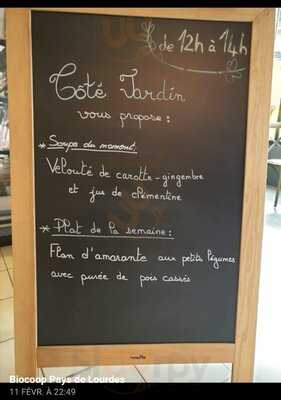 de 12h à 14h
Côté Jardin
vous propose :
* Soupe du moment :
Velouté de carotte - gingembre
et jus de clémentine
* Plat de la semaine :
Flan d'amarante aux petits légumes
avec purée de pois cassés
Biocoop Pays de Lourdes
11 FÉVR. À 22:49